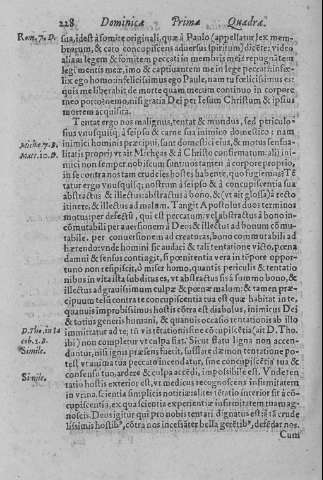 228 Dominicæ Primæ Quadra.
Rom. 7. D. sua, idest à fomite originali, quæ à Paulo appellatur lex membrorum, & cato concupiscens aduersus spiritum) dicete: video
aliam legem & fomitem peccati in membris meis repugnãtem
legi mentis meæ, imò & captiuantem me in lege peccati infœlix
ego homo
quis me liberabit de morte quam mecum continuo in corpore
meo porto? nemo, nisi gratia Dei per Iesum Christum & ipsius
mortem acquisita.
Tentat ergo nos malignus, tentat & mundus, sed periculosius
vnusquisq; à seipso & carne sua inimico domestico: nam
Micheæ 7. B. inimici hominis præcipui, sunt domestici eius, & motus sensualitatis
Matt. 10. D. proprij vt ait Michęas & à Christo confirmatum: alij inimici
non semper nobiscum sunt: nos tamen à corpore proprio,
in se contra nos tam crudeles hostes habente, quo fugiemus? Tẽtatur
ergo vnusquisq; nostrum à seipso & à concupiscentia sua
abstractus & illectus: abstractus à bono, & (vt ait glossa) à recto
itinere, & illectus ad malum. Tangit Apostolus duos terminos
motus: per defectũ, qui est peccatum, vel abstractus à bono incõmutabili
per auersionem à Deo: & illectus ad bonum cõmutabile,
per conuersionem ad creaturas, bono commutabili adhærendo:
vnde homini sic audaci & tali tentatione victo, pœna
damni & sensus contingit, si pœnitentia vera in tẽpore opportuno
non respiscit, ô miser homo, quantis periculis & tentationibus
in vita ista subditus es, vt abstractus sis à summo bono, &
illectus ad grauissimum culpæ & pœnæ malum: & tamen præcipuum
telũ contra te concupiscentia tua est quæ habitat in te,
quanuis improbissimus hostis cõtra te est diabolus, inimicus Dei
& totius generis humani, & quanuis occasio tentationis ab illo
D. Tho. in 14 immittatur ad te, tñ vis tẽtationis sine cõcupiscẽtia (ait D. Tho.
ibi) non completur vt culpa fiat. Sicut flatu ligna non accendantur,
Simile. nisi ignis præsens fuerit, sufflare dæmon tentatione potest,
vt anima tua peccato incendatur, sine concupiscẽtia tua &
consensu tuo, ardere & culpa accẽdi, impossibile est. Vnde tentatio
Simile. hostis exterior est, vt medicus recognoscens infirmitatem
in vrina, scientia simplicis notitiæ: alite tẽtatio interior fit à cõcupiscentia,
ex qua scientia experientiæ infirmitatem tuam agnoscis.
Deo igitur qui pro nobis tentari dignatus est: à tã crudelissimis
hostibꝰ, cõtra nos incesãter bella gerẽtibꝰ, defẽdat nos.
Cum